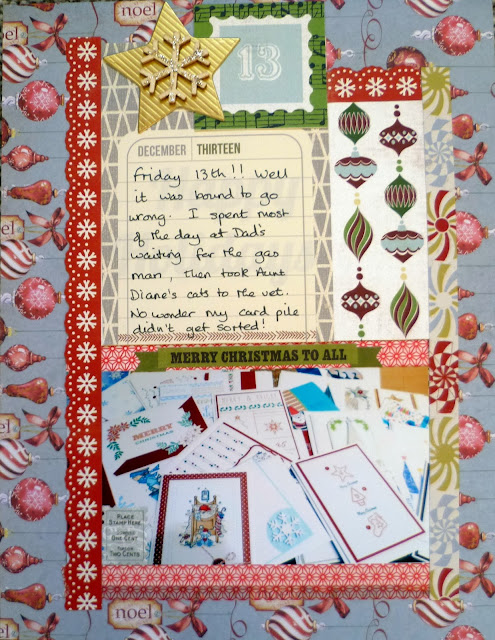 noel
13
DECEMBER THIRTEEN
Friday 13th!! Well
it was bound to go
wrong. I spent most
of the day at Dad's
waiting for the gas
man, then took Aunt
Diane's cats to the vet.
No wonder my card pile
didn't get sorted!
MERRY CHRISTMAS TO ALL
MERRY
CHRISTMAS
PLACE
STAMP HERE
DOMESTIC
ONE CENT
FOREIGN
TWO CENTS
noel
noel